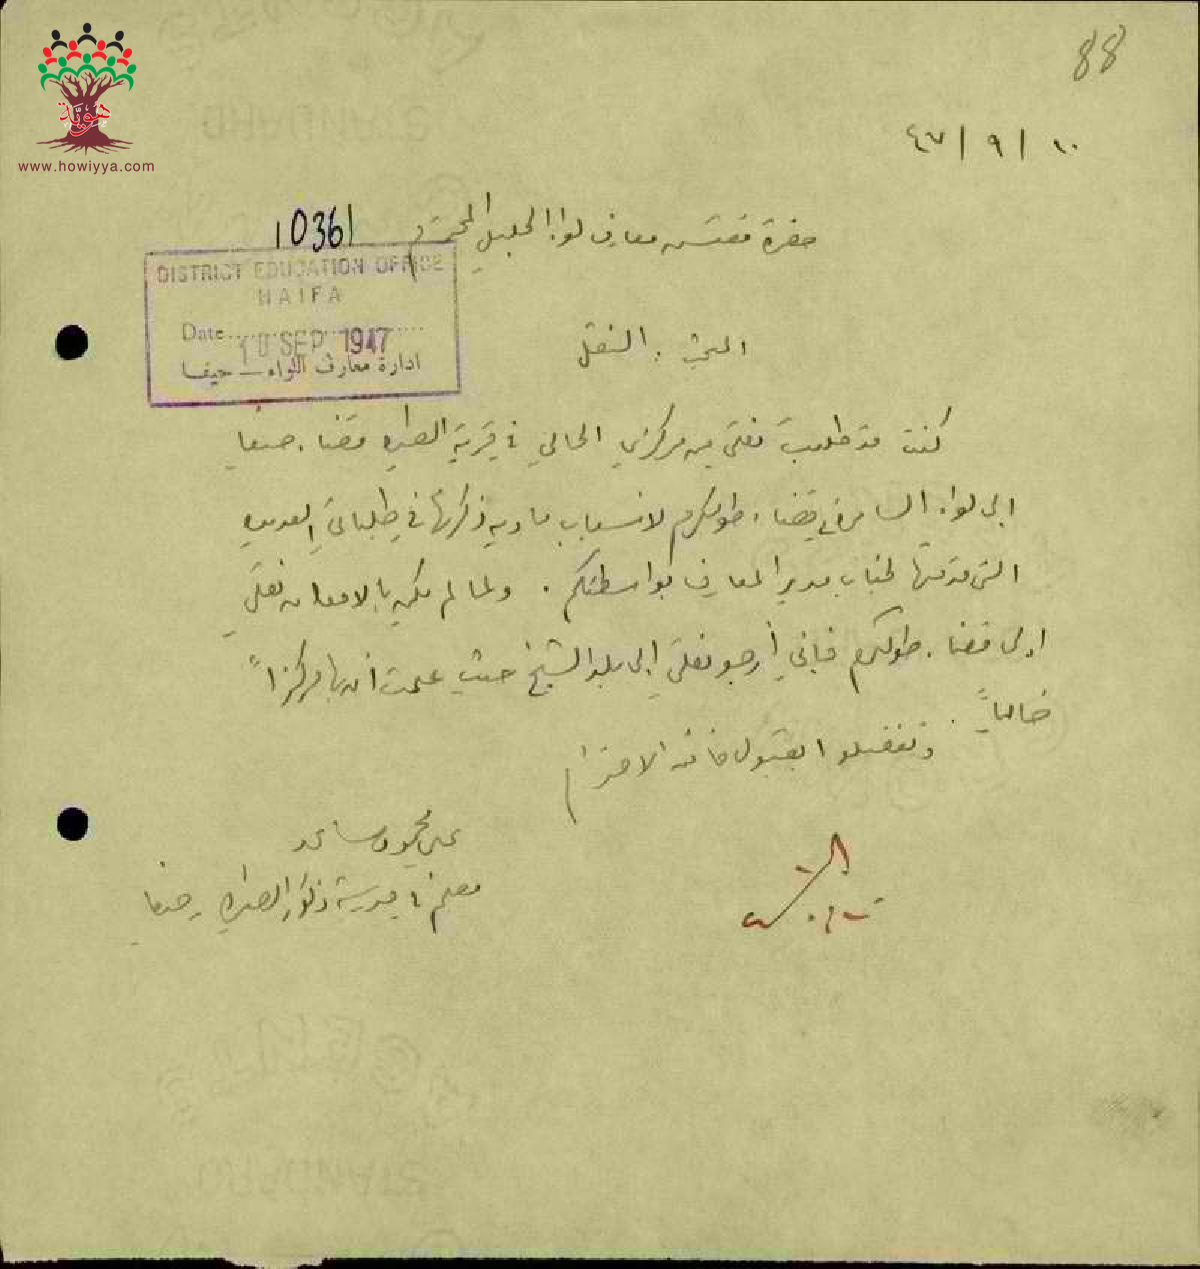 هوية
www.howiyya.com
88
١٠ / ٩ / ٤٧
حضرة مفتش معارف لواء الجليل المحترم
10361
DISTRICT EDUCATION OFFICE
HAIFA
Date
10 SEP 1947
ادارة معارف اللواء - حيفا
النقل
كنت قد طلبت نقلي من مركزي الحالي في قرية الطيره قضاء حيفا
الى لواء السامره في قضاء طولكرم لاسباب ماديه ذكرتها في طلباتي العديده
التي قدمتها لجناب مدير المعارف بواسطتكم . ولما لم يكن بالامكان نقلي
الى قضاء طولكرم فإني أرجو نقلي إلى بلد الشيخ حيث علمت أن بها مركزاً
خالياً .
وتفضلوا بقبول فائق الاحترام
علي محمود ساعد
معلم في مدرسة ذكور الطيره - حيفا